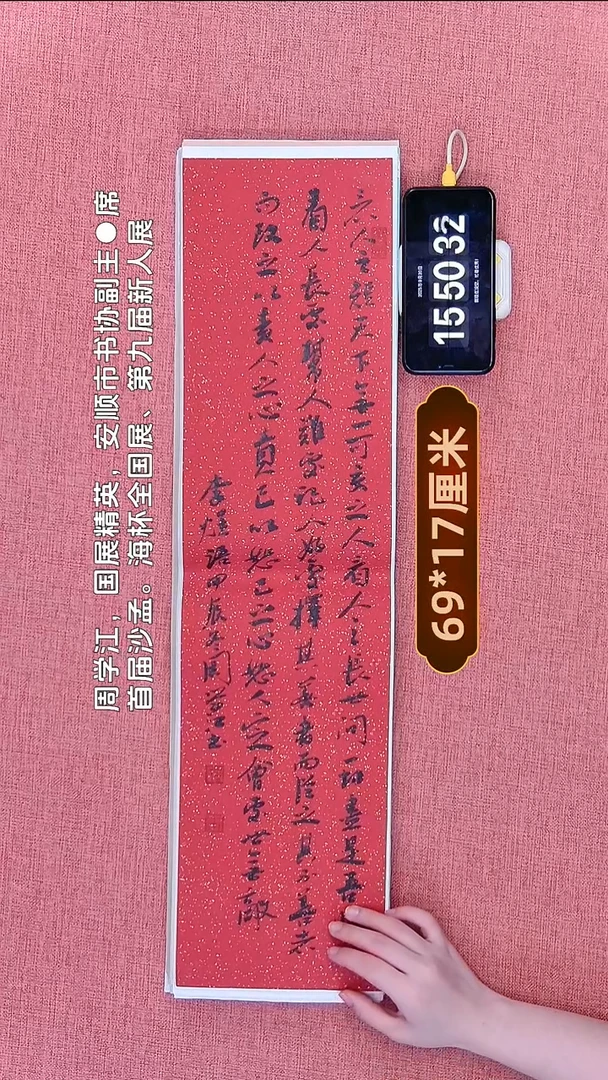 周学江，国展精英，安顺市书协副主●席
首届沙孟。海杯全国展、第九届新人展
15 50 32
69*17厘米
人之短天下無一可交之人看人之長世间一切盡是吾
看人長處幫人難處記人好處擇其善者而從之其不善者
而改之以責人之心責己以恕己之心恕人定會處世無敵
語甲辰冬周學江書